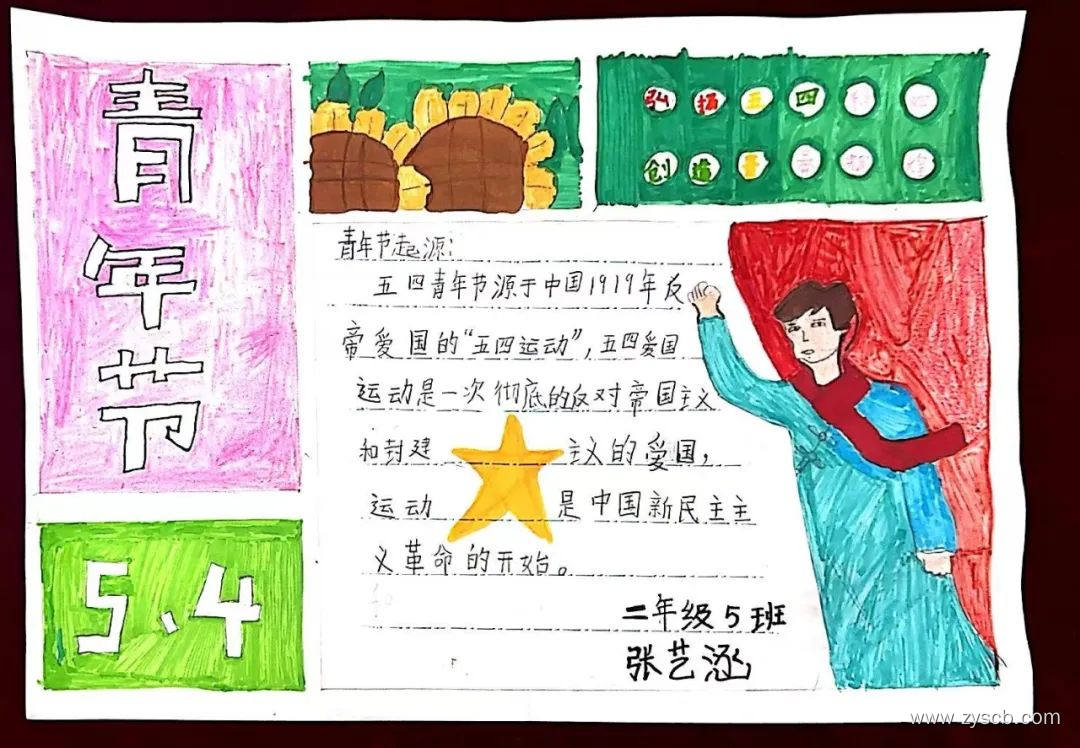 青年节
弘扬五四
创造
青年节起源:
五四青年节源于中国1919年反
帝爱国的“五四运动”,五四爱国
运动是一次彻底的反对帝国主义
和封建主义的爱国,
运动是中国新民主主
义革命的开始。
5、4
二年级5班
张艺涵
www.zyscb.com